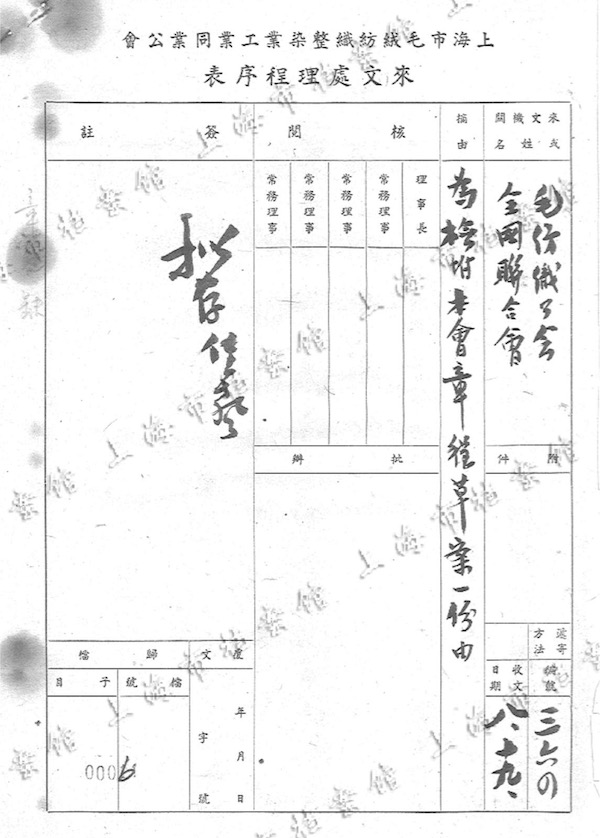 上海市毛絨紡織整染業工業同業公會
來文處理程序表
來文機關
或姓名
毛紡織工會
全國聯合會
附件
遞寄
方法
編號
三六〇
收文
日期
八、十九、
摘由
為檢附本會章程草案一份由
核閱
理事長
常務理事
常務理事
常務理事
常務理事
批辦
簽註
擬存
覆文
年月日
字
號
歸檔
檔號
子目
0006
上海市檔案館